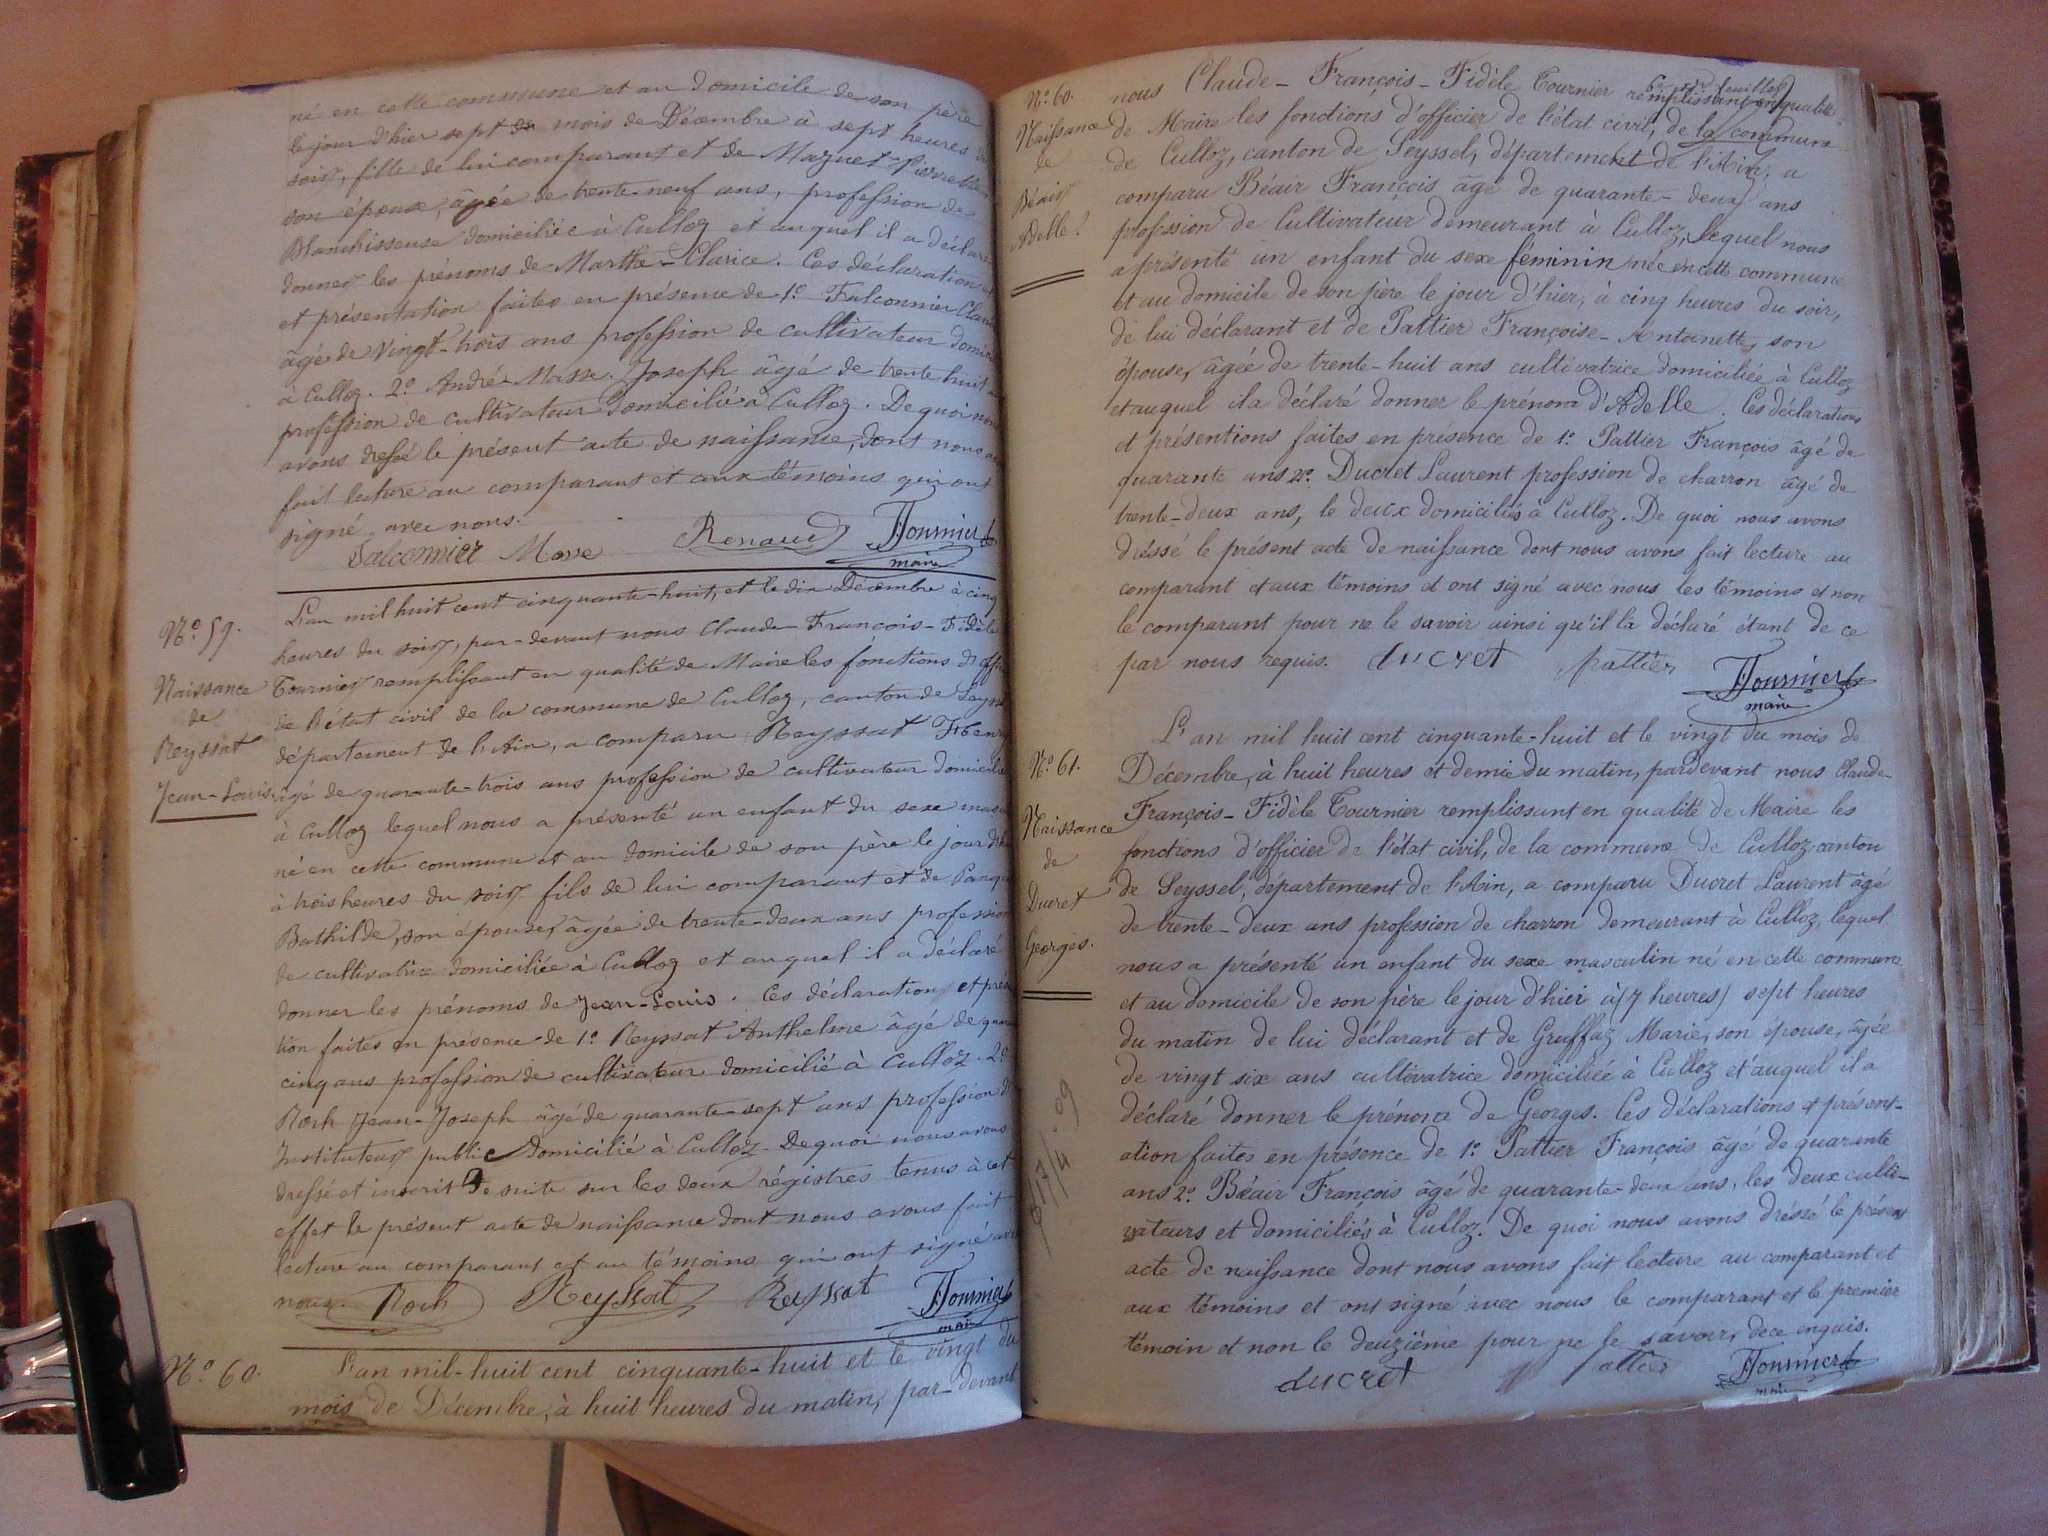 né en cette commune et au domicile de son père
le jour d'hier sept du mois de Décembre à sept heures du
soir, fille de lui comparant et de Maznet Pierrette
son épouse, âgée de trente-neuf ans, profession de
Blanchisseuse domiciliée à Culloz et auquel il a déclaré
donner les prénoms de Marthe-Clarice. Ces déclaration et
et présentation faites en présence de 1° Falconnier Claude
âgé de vingt-trois ans profession de cultivateur domicilié
à Culloz. 2° André-Masse Joseph âgé de trente huit ans
profession de cultivateur domicilié à Culloz. De quoi nous
avons dressé le présent acte de naissance, dont nous avons
fait lecture au comparant et aux témoins qui ont
signé avec nous.
Falconnier Masse Renaud Tournier
maire
N° 59.
Naissance
de
Reyssat
Jean-Louis.
L'an mil huit cent cinquante-huit, et le dix Décembre à cinq
heures du soir, par-devant nous Claude-François-Fidèle
Tournier remplissant en qualité de Maire les fonctions d'officier
de l'état civil de la commune de Culloz, canton de Seyssel
département de l'Ain, a comparu Reyssat Henry
âgé de quarante-trois ans profession de cultivateur domicilié
à Culloz lequel nous a présenté un enfant du sexe masculin
né en cette commune et au domicile de son père le jour d'hier
à trois heures du soir fils de lui comparant et de
Bathilde, son épouse, âgée de trente-deux ans profession
de cultivatrice domiciliée à Culloz et auquel il a déclaré
donner les prénoms de Jean-Louis. Ces déclaration et présenta-
tion faites en présence de 1° Reyssat Anthelme âgé de quarante
cinq ans profession de cultivateur domicilié à Culloz. 2°
Roch Jean-Joseph âgé de quarante-sept ans profession d'
Instituteur public domicilié à Culloz. De quoi nous avons
dressé et inscrit de suite sur les deux régistres tenus à cet
effet le présent acte de naissance dont nous avons fait
lecture au comparant et au témoins qui ont signé avec
nous. Roch Reyssat Reyssat Tournier
maire
N° 60.
L'an mil-huit cent cinquante-huit et le vingt du
mois de Décembre, à huit heures du matin, par-devant
N° 60.
Naissance
de
Béair
Adelle.
nous Claude-François-Fidèle Tournier remplissant en qualité
de Maire les fonctions d'officier de l'état civil, de la commune
de Culloz, canton de Seyssel, département de l'Ain, a
comparu Béair François âgé de quarante-deux ans
profession de Cultivateur demeurant à Culloz, lequel nous
a présenté un enfant du sexe féminin née en cette commune
et au domicile de son père le jour d'hier, à cinq heures du soir,
de lui déclarant et de Pattier Françoise-Antoinette, son
épouse, âgée de trente-huit ans cultivatrice domiciliée à Culloz
et auquel il a déclaré donner le prénom d'Adelle. Ces déclarations
et présentions faites en présence de 1° Pattier François âgé de
quarante ans 2° Ducret Laurent profession de charron âgé de
trente-deux ans, le deux domiciliés à Culloz. De quoi nous avons
dréssé le présent acte de naissance dont nous avons fait lecture au
comparant et aux témoins et ont signé avec nous les témoins et non
le comparant pour ne le savoir ainsi qu'il l'a déclaré étant de ce
par nous requis. ducret pattier Tournier
maire
N° 61.
Naissance
de
Ducret
Georges.
L'an mil huit cent cinquante-huit et le vingt du mois de
Décembre, à huit heures et demie du matin, pardevant nous Claude-
François-Fidèle Tournier remplissant en qualité de Maire les
fonctions d'officier de l'état civil, de la commune de Culloz canton
de Seyssel, département de l'Ain, a comparu Ducret Laurent âgé
de trente-deux ans profession de charron demeurant à Culloz, lequel
nous a présenté un enfant du sexe masculin né en cette commune
et au domicile de son père le jour d'hier à (7 heures) sept heures
du matin de lui déclarant et de Gruffaz Marie, son epouse, âgée
de vingt six ans cultivatrice domiciliée à Culloz et auquel il a
déclaré donner le prénom de Georges. Ces déclarations et présent-
ation faites en présence de 1° Pattier François âgé de quarante
ans 2° Béair François âgé de quarante-deux ans, les deux culti-
vateurs et domiciliés à Culloz. De quoi nous avons dréssé le présent
acte de naissance dont nous avons fait lecture au comparant et
aux témoins et ont signé avec nous le comparant et le premier
témoin et non le deuzième pour ne le savoir, de ce enquis.
ducret pattier Tournier
maire